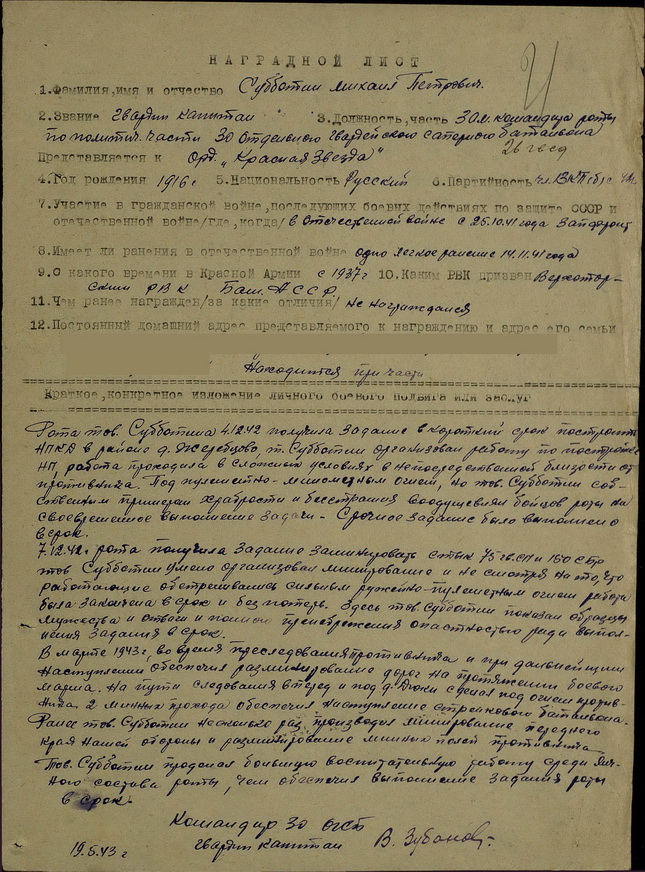 НАГРАДНОЙ ЛИСТ
1.Фамилия,имя и отчество Субботин Михаил Петрович.
2.Звание гвардии капитан 3.Должность,часть Зам. командира роты
по политич. части 30 Отдельного гвардейского саперного батальона
26 гв сд
Представляется к орд. „Красная Звезда"
4.Год рождения 1916 г 5.Национальность Русский 6.Партийность чл. ВКП(б) с
7.Участие в гражданской войне,последующих боевых действиях по защите СССР и
отечественной войне/где,когда/ в Отечественной войне с 25.10.41 года Запфронт
8.Имеет ли ранения в отечественной войне одно легкое ранение 14.11.41 года
9.С какого времени в Красной Армии с 1937 г 10.Каким РВК призван Верхотор-
ским РВК Баш. АССР.
11.Чем ранее награжден/за какие отличия/ не награждался
12.Постоянный домашний адрес представляемого к награждению и адрес его семьи
Находится при части
Краткое,конкретное изложение личного боевого подвига или заслуг
Рота тов. Субботина 4.12.42 получила задание в короткий срок построить
НПКД в районе д. Жеребцово, т. Субботин организовал работу по постройке
НП, работа проходила в сложных условиях в непосредственной близости от
противника. Под пулеметно-минометным огнем, но тов. Субботин соб-
ственным примером храбрости и бесстрашия воодушевлял бойцов роты на
своевременное выполнение задачи - Срочное задание было выполнено
в срок.
7.12.42г. рота получила задание заминировать стык 75 гв.сп и
тов Субботин умело организовал минирование и не смотря на то, что
работающие обстреливались сильным ружейно-пулеметным огнем работа
была закончена в срок и без потерь. Здесь тов. Субботин показал образцы
мужества и отваги и полной пренебрежения опасностью ради выпол-
нения задания в срок.
В марте 1943 г. во время преследования противника и при дальнейшем
наступлении обеспечил разминирование дорог на протяжении боевого
марша. На пути следования вперед и под д. сделал под огнем против-
ника. 2 минных прохода обеспечил наступление стрелкового батальона.
Ранее тов. Субботин несколько раз производил минирование переднего
края нашей обороны и разминирование минных полей противника
Тов. Субботин проделал большую воспитательную работу среди лич-
ного состава роты, чем обеспечил выполнение задания роты
в срок.
Командир 30 огсб
гвардии капитан В. Зубанов.
19.5.43 г